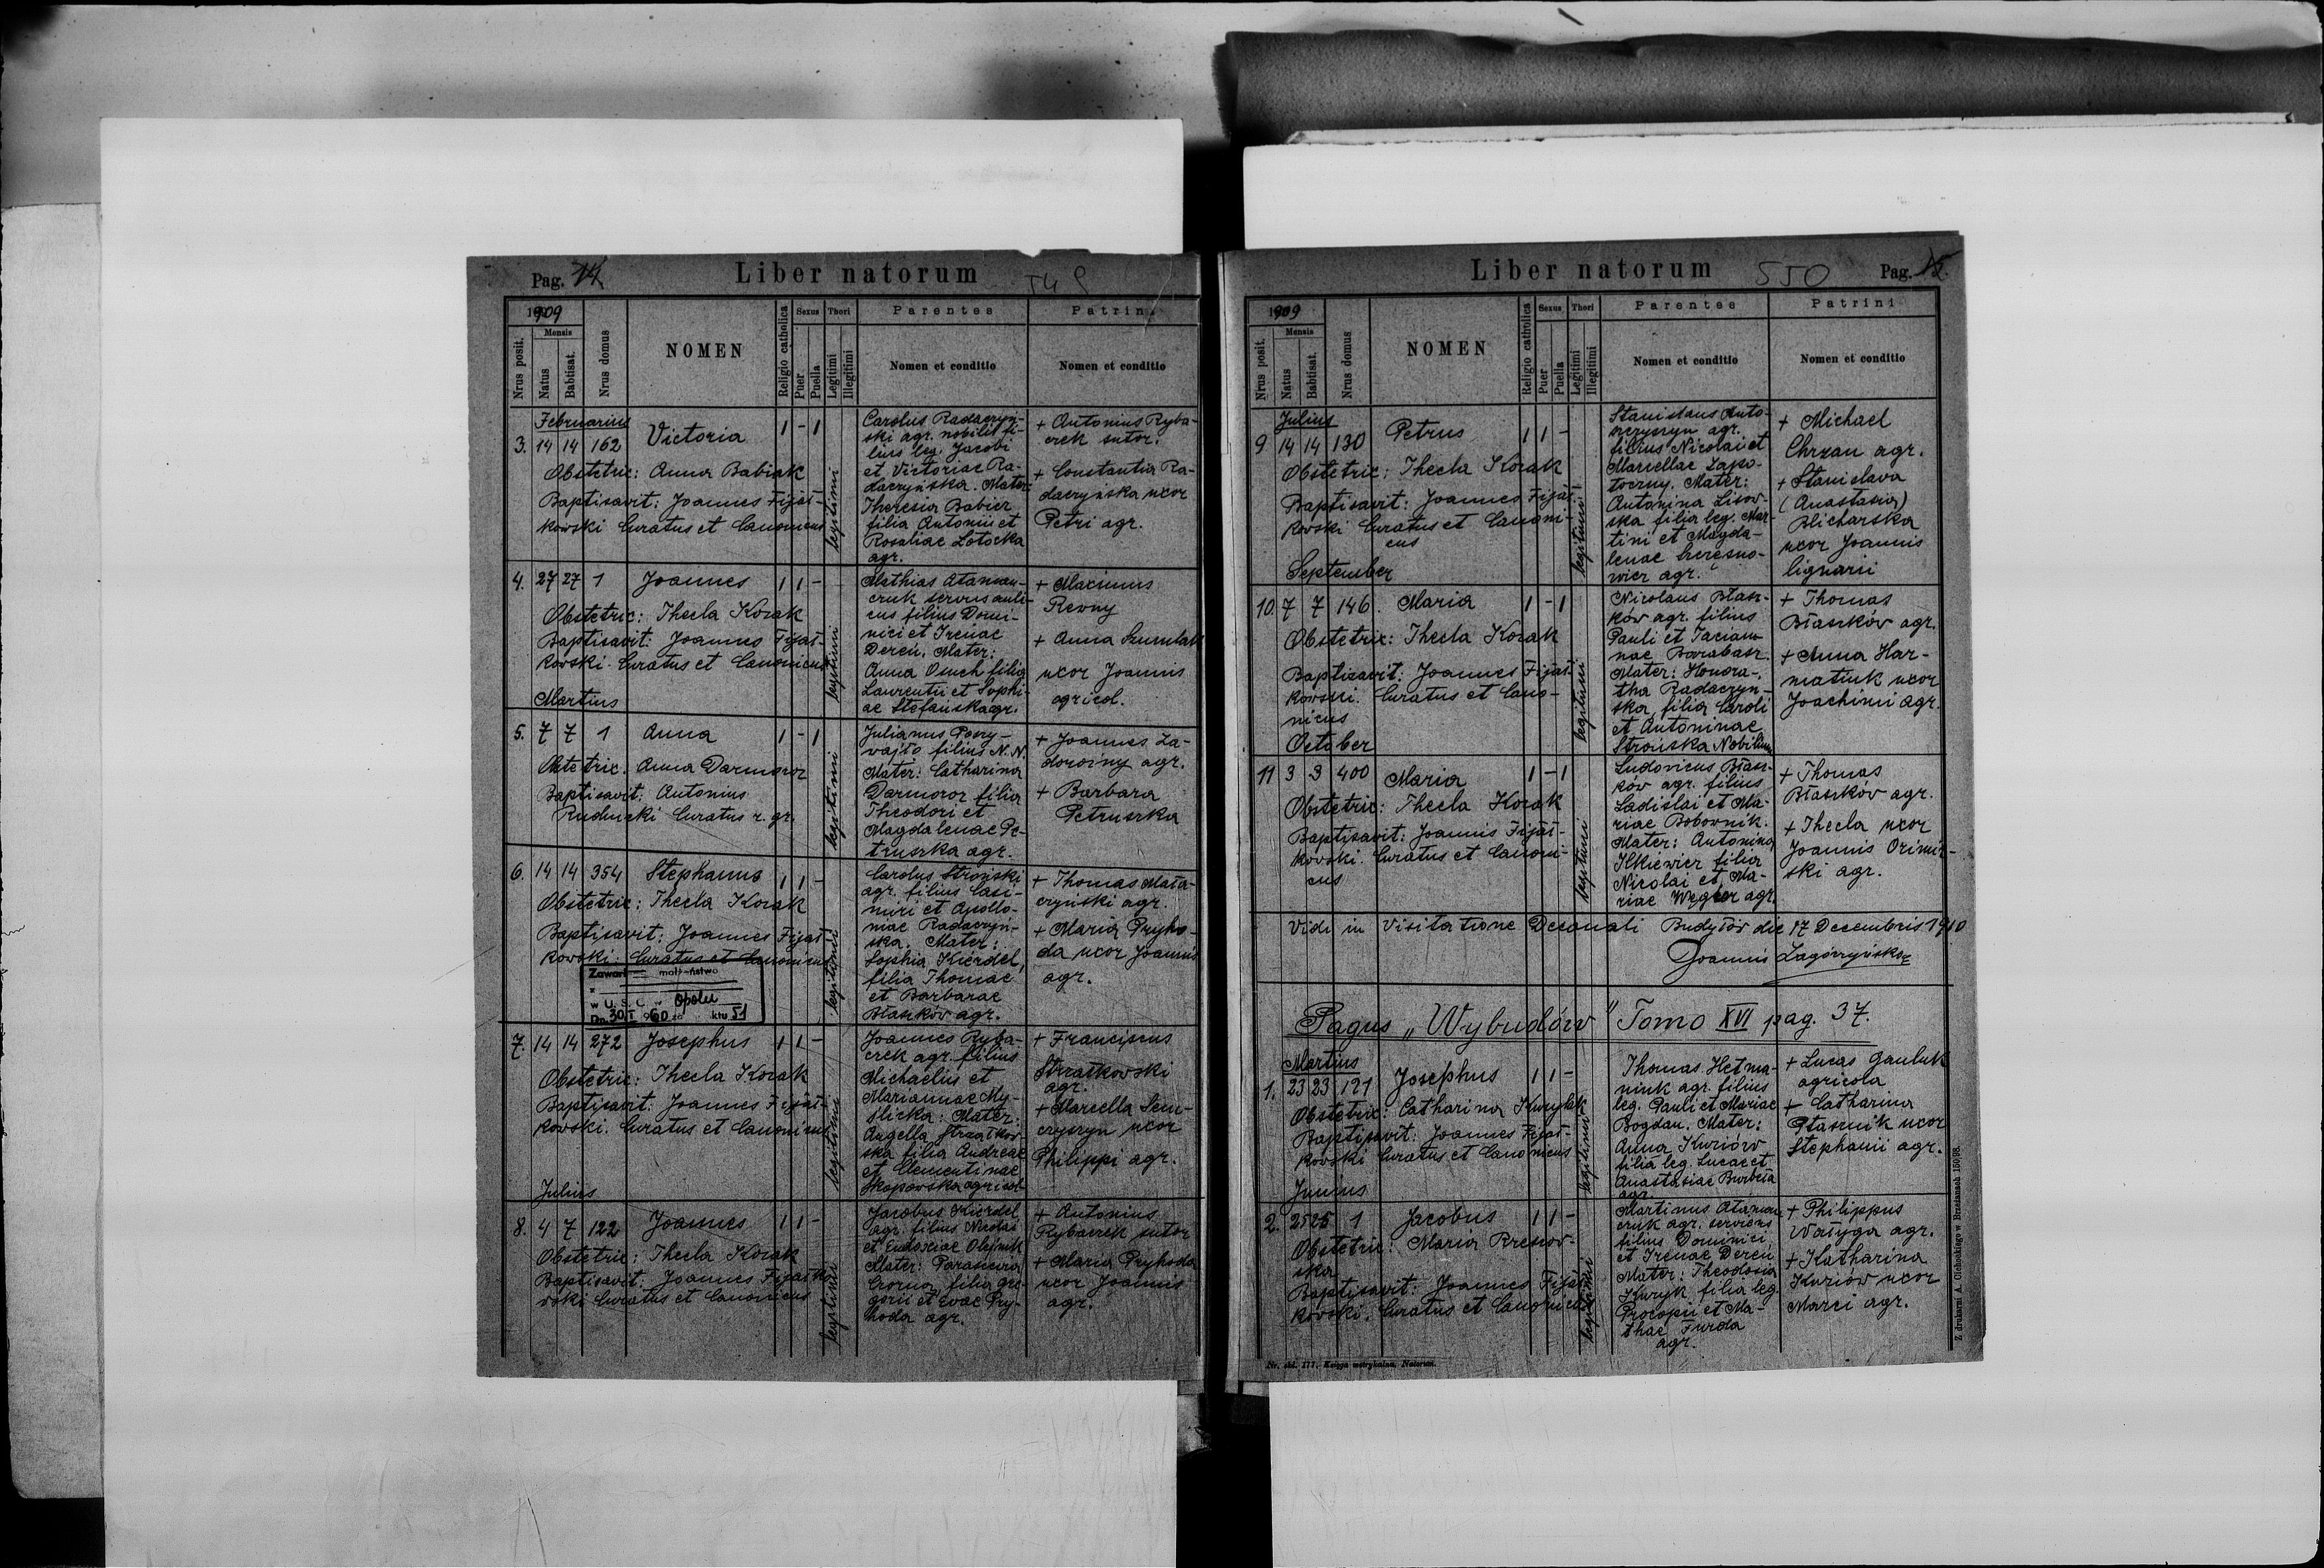 Pag. 14
Liber natorum
549
1909
Nrus posit.
Mensis
Natus
Babtisat.
Nrus domus
NOMEN
Religio catholica
Sexus
Puer
Puella
Thori
Legitimi
Illegitimi
Parentes
Nomen et conditio
Patrini
Nomen et conditio
Februarius
3. 14 14 162 Victoria 1 - 1
Obstetrix: Anna Babiak
Baptisavit: Joannes Fijał-
kowski Curatus et Canonicus
legitimi
Carolus Radaczyń-
ski agr. nobilis fi-
lius leg. Jacobi
et Victoriae Ra-
daczyńska. Mater:
Theresia Babicz
filia Antonii et
Rosaliae Łotocka
agr.
+ Antonius Ryba-
czek sutor.
+ Constantia Ra-
daczyńska uxor
Petri agr.
4. 27 27 1 Joannes 1 1 -
Obstetrix: Thecla Kozak
Baptisavit: Joannes Fijał-
kowski. Curatus et Canonicus
legitimi
Mathias Ataman-
czuk servus auli-
cus filius Domi-
nici et Irenae
Dereń. Mater:
Anna Osuch filia
Laurentii et Sophi-
ae Stefańska agr.
+ Maximus
Rewny
+ Anna Szumlak
uxor Joannis
agricol.
Martius
5. 7 7 1 Anna 1 - 1
Obstetrix. Anna Darmoroz
Baptisavit: Antonius
Rudnicki Curatus r. gr.
legitimi
Julianus Poery-
wajło filius N.N.
Mater: Catharina
Darmoroz filia
Theodori et
Magdalenae Pe-
truszka agr.
+ Joannes Za-
dorożny agr.
+ Barbara
Petruszka
6. 14 14 354 Stephanus 1 1 -
Obstetrix: Thecla Kozak
Baptisavit: Joannes Fijał-
kowski: Curatus et Canonicus
legitimi
Zawarł małżeństwo
w U. S. C. w Opolu
Dn. 30 I 960 aktu 51
Carolus Stroński
agr. filius Casi-
miri et Apollo-
niae Radaczyń-
ska. Mater:
Sophia Kierdel,
filia Thomae
et Barbarae
Błaszków agr.
+ Thomas Mała-
czyński agr.
+ Maria Pryho-
da uxor Joannis
agr.
7. 14 14 272 Josephus 1 1 -
Obstetrix: Thecla Kozak
Baptisavit: Joannes Fijał-
kowski. Curatus et Canonicus
legitimi
Joannes Ryba-
czek agr. filius
Michaelis et
Mariannae My-
ślicka: Mater:
Angella Strzałkow-
ska filia Andreae
et Clementinae
Skopowska agricol.
+ Franciscus
Strzałkowski
agr.
+ Marcella Sem-
czyszyn uxor
Philippi agr.
Julius
8. 4 7 122 Joannes 1 1 -
Obstetrix: Thecla Kozak
Baptisavit: Joannes Fijałko-
wski Curatus et Canonicus
legitimi
Jacobus Kierdel
agr. filius Nicolai
et Eudoxiae Olejnik
Mater: Parascevia
Czorna, filia Gre-
gorii et Evae Pry-
hoda agr.
+ Antonius
Rybaczek sutor
+ Maria Pryhoda
uxor Joannis
agr.
Liber natorum
550
Pag. 15.
1909
Nrus posit.
Mensis
Natus
Babtisat.
Nrus domus
NOMEN
Religio catholica
Sexus
Puer
Puella
Thori
Legitimi
Illegitimi
Parentes
Nomen et conditio
Patrini
Nomen et conditio
Julius
9 14 14 130 Petrus 1 1 -
Obstetrix: Thecla Kozak
Baptisavit: Joannes Fijał-
kowski Curatus et Canoni-
cus
legitimi
Stanislaus Anto-
szczyszyn agr.
filius Nicolai et
Marcellae Zapo-
toczny. Mater:
Antonina Lisow-
ska filia leg. Mar-
tini et Magda-
lenae Czeresno-
wicz agr.
+ Michael
Chrzan agr.
+ Stanislava
(Anastasia)
Blicharska
uxor Joannis
lignarii
September
10. 7 7 146. Maria 1 - 1
Obstetrix: Thecla Kozak
Baptizavit: Joannes Fijał-
kowski. Curatus et Cano-
nicus
legitimi
Nicolaus Błasz-
ków agr. filius
Pauli et Tacian-
nae Barabasz.
Mater: Honora-
tha Radaczyń-
ska, filia Caroli
et Antoninae
Strońska Nobilium
+ Thomas
Błaszków agr.
+ Anna Har-
matiuk uxor
Joachimi agr.
October
11 3 3 400 Maria 1 - 1
Obstetrix: Thecla Kozak
Baptisavit: Joannis Fijał-
kowski. Curatus et Canoni-
cus
legitimi
Ludovicus Błasz-
ków agr. filius
Ladislai et Ma-
riae Bobownik.
Mater: Antonina
Ilkiewicz filia
Nicolai et Ma-
riae Węgier agr.
+ Thomas
Błaszków agr.
+ Thecla uxor
Joannis Ozimiń-
ski agr.
Vidi in Visitatione Decanali Budyłów die 17 Decembris 1910
Joannis
Pagus „Wybudów" Tomo XVI pag. 37.
Martius
1. 23 23 121 Josephus 1 1 -
Obstetrix: Catharina Kuryłak
Baptisavit: Joannes Fijał-
kowski Curatus et Canonicus
legitimi
Thomas Hetma-
niuk agr. filius
leg. Pauli et Mariae
Bogdan. Mater:
Anna Kuziów
filia leg. Lucae et
Anastasiae Burbeła
agr.
+ Lucas Gauluk
agricola
+ Catharina
Ptasznik uxor
Stephanii agr.
Junius
2. 25 25 1 Jacobus 1 1 -
Obstetrix: Maria Brezow-
ska
Baptisavit: Joannes Fijał-
kowski. Curatus et Canonicus
legitimi
Martinus Ataman-
czuk agr. serviens
filius Dominici
et Irenae Dereń
Mater: Theodosia
Kuryk filia leg.
Procopii et Ma-
thae Furda
agr.
+ Philippus
Wałyga agr.
+ Katharina
Kuziów uxor
Marci agr.
Nr. skł. 177. Księga metrykalna. Natorum.
Z drukarni A. Olchockiego w Brzeżanach 150/98.